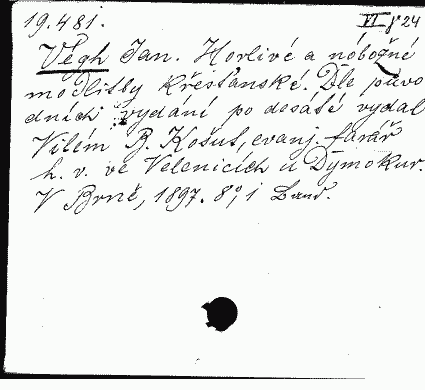 19.481. VI γ 24
Végh Jan. Horlivé a nóbožné
modlitby křesťanské. Dle půvo
dních vydání po desáté vydal
Vilém B. Košut, evanj. farář
h. v. ve Velenicích u Dymokur.
V Brně, 1897. 8°, 1 Band.